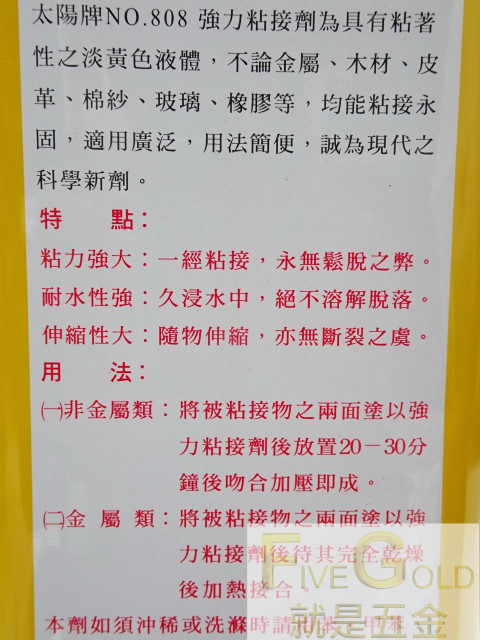 太陽牌NO.808 強力粘接劑為具有粘著
性之淡黃色液體，不論金屬、木材、皮
革、棉紗、玻璃、橡膠等，均能粘接永
固，適用廣泛，用法簡便，誠為現代之
科學新劑。
特　點：
粘力強大：一經粘接，永無鬆脫之弊。
耐水性強：久浸水中，絕不溶解脫落。
伸縮性大：隨物伸縮，亦無斷裂之虞。
用　法：
㈠非金屬類：將被粘接物之兩面塗以強
力粘接劑後放置20－30分
鐘後吻合加壓即成。
㈡金 屬 類：將被粘接物之兩面塗以強
力粘接劑後待其完全乾燥
後加熱接合。
本劑如須沖稀或洗滌時請用苯、甲苯
FIVE GOLD
就是五金